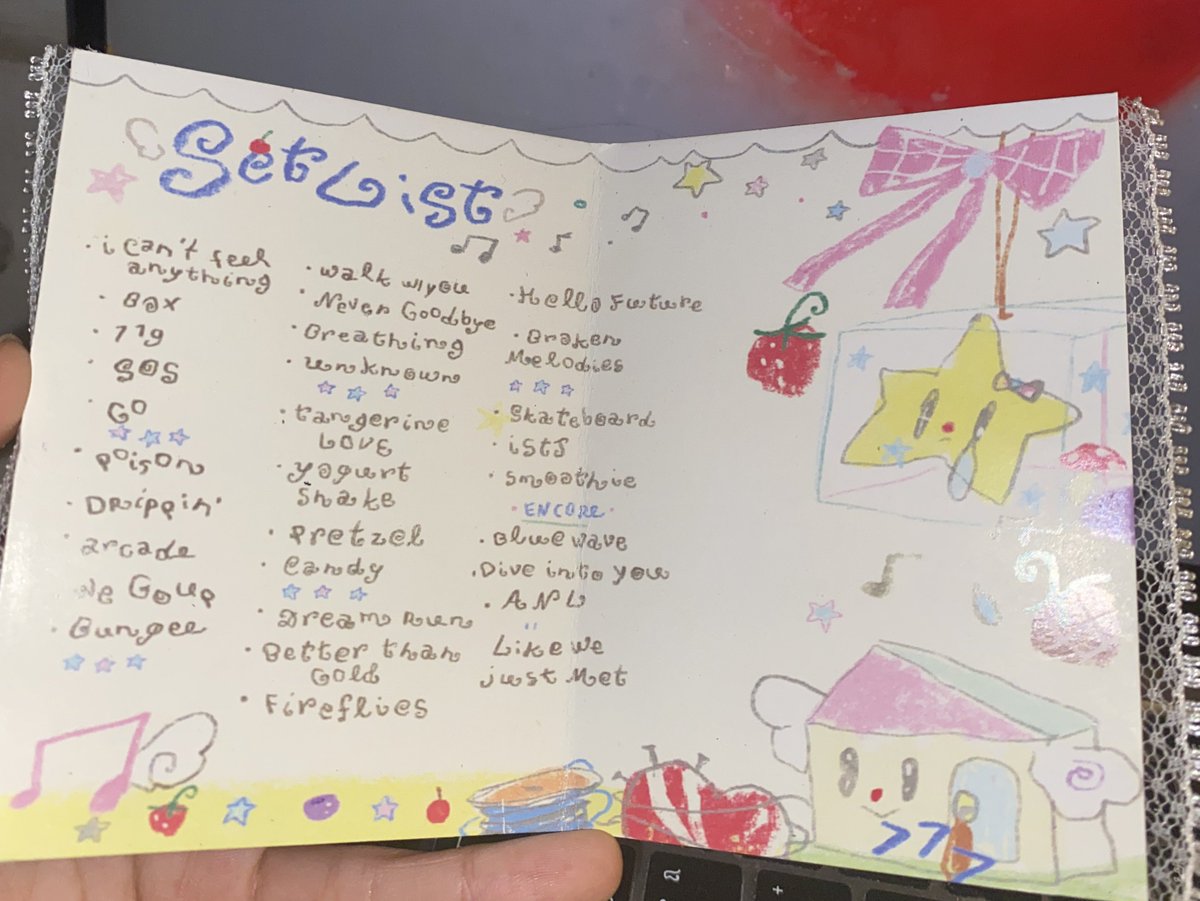 Set List
· i can't feel
anything
· Box
· 119
· SOS
· GO
· Poison
· Drippin'
· arcade
We Go up
· Bungee
· walk w/you
· Never Goodbye
· Breathing
· unknown
: tangerine
LOVE
· yogurt
Shake
· Pretzel
· Candy
· Dream Run
· Better than
Gold
· Fireflies
· Hello Future
· Broken
Melodies
· Skateboard
· istJ
· Smoothie
· ENCORE ·
· Blue wave
· Dive into you
· ANL
Like We
just Met
777